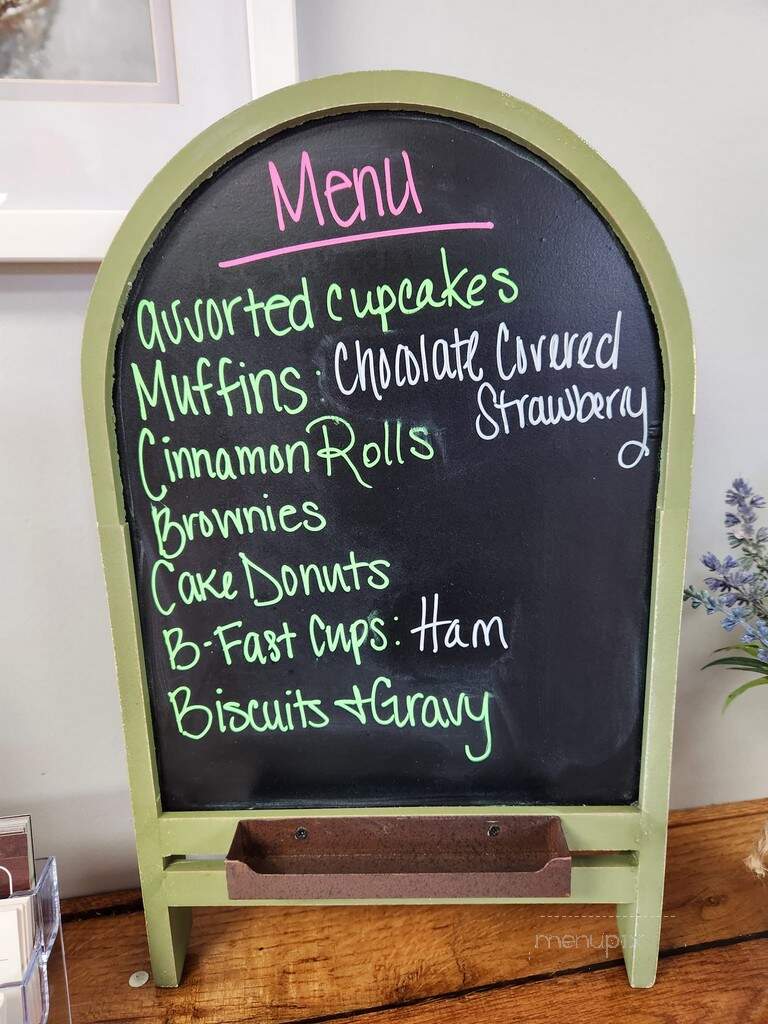 Menu
assorted cupcakes
Muffins: Chocolate Covered
Strawberry
Cinnamon Rolls
Brownies
Cake Donuts
B-Fast Cups: Ham
Biscuits + Gravy
menupix